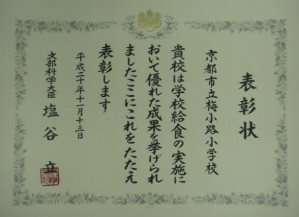 表彰状
京都市立梅小路小学校
貴校は学校給食の実施に
おいて優れた成果を挙げられ
ましたここにこれをたたえ
表彰します
平成二十年十一月十三日
文部科学大臣 塩谷 立